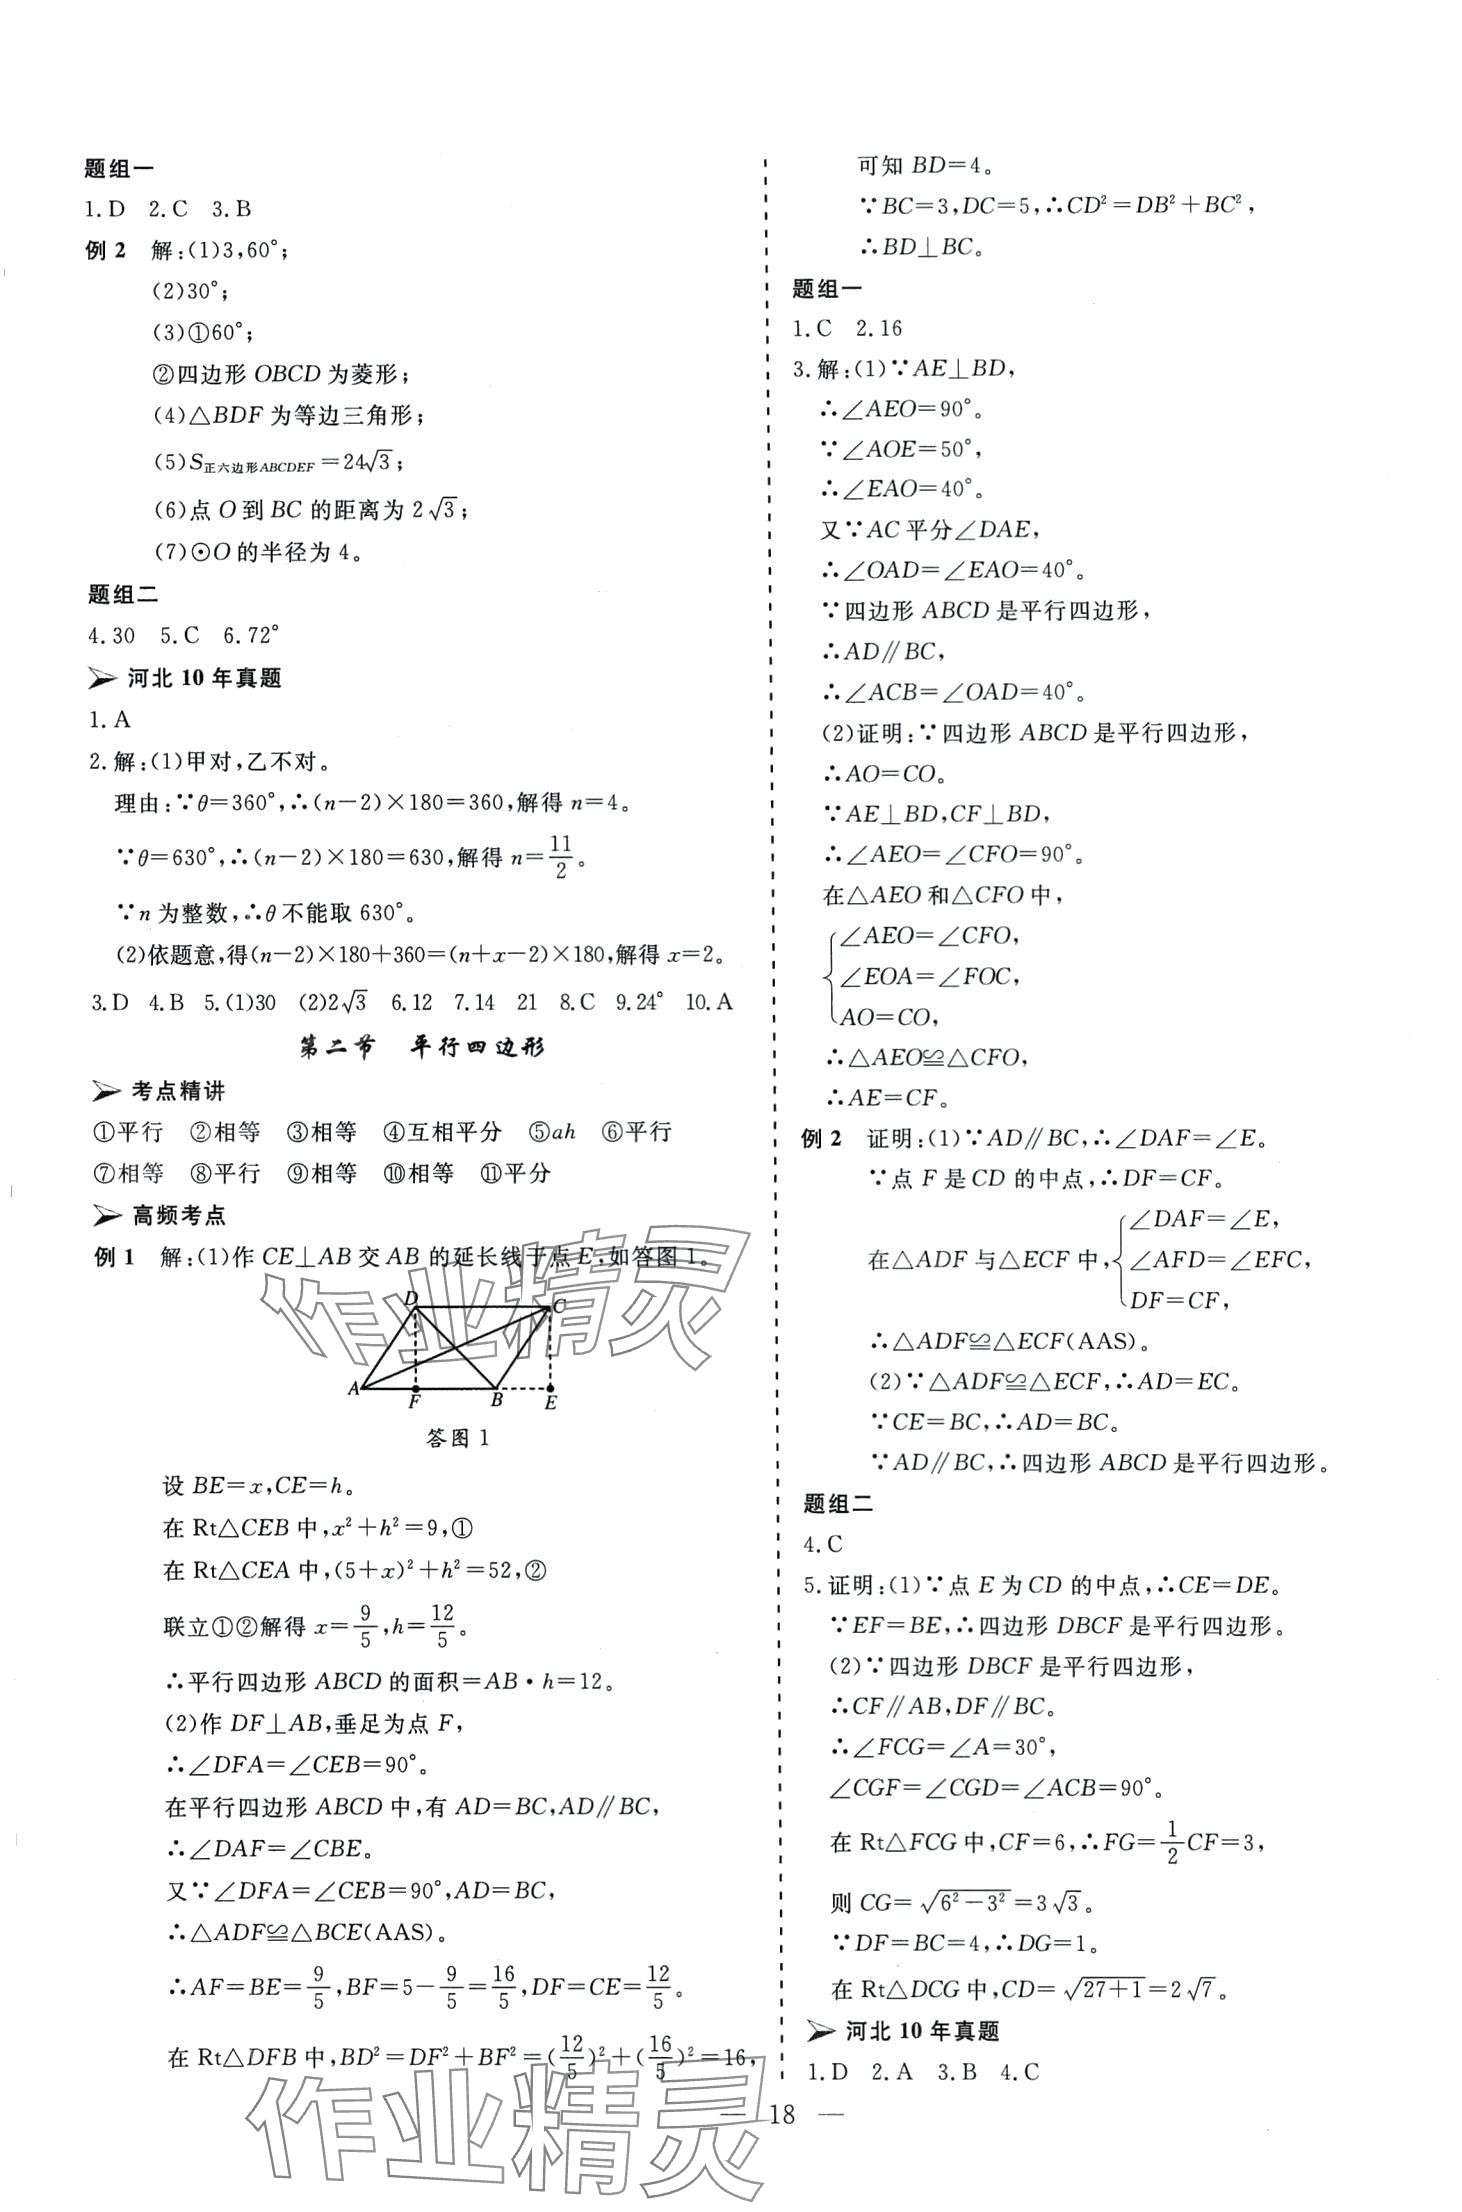 题组一
1.D 2.C 3.B
例 2 解:(1)3,60°;
(2)30°;
(3)①60°;
②四边形 OBCD 为菱形;
(4)△BDF 为等边三角形;
(5)S正六边形ABCDEF=24√3;
(6)点 O 到 BC 的距离为 2√3;
(7)⊙O 的半径为 4。
题组二
4.30 5.C 6.72°
➢ 河北 10 年真题
1.A
2.解:(1)甲对,乙不对。
理由:∵θ=360°,∴(n-2)×180=360,解得 n=4。
∵θ=630°,∴(n-2)×180=630,解得 n=11/2。
∵n 为整数,∴θ 不能取 630°。
(2)依题意,得(n-2)×180+360=(n+x-2)×180,解得 x=2。
3.D 4.B 5.(1)30 (2)2√3 6.12 7.14 21 8.C 9.24° 10.A
第二节 平行四边形
➢ 考点精讲
①平行 ②相等 ③相等 ④互相平分 ⑤ah ⑥平行
⑦相等 ⑧平行 ⑨相等 ⑩相等 ⑪平分
➢ 高频考点
例 1 解:(1)作 CE⊥AB 交 AB 的延长线于点 E,如答图 1。
D C
A F B E
答图 1
设 BE=x,CE=h。
在 Rt△CEB 中,x²+h²=9,①
在 Rt△CEA 中,(5+x)²+h²=52,②
联立①②解得 x=9/5,h=12/5。
∴平行四边形 ABCD 的面积=AB·h=12。
(2)作 DF⊥AB,垂足为点 F,
∴∠DFA=∠CEB=90°。
在平行四边形 ABCD 中,有 AD=BC,AD∥BC,
∴∠DAF=∠CBE。
又∵∠DFA=∠CEB=90°,AD=BC,
∴△ADF≌△BCE(AAS)。
∴AF=BE=9/5,BF=5-9/5=16/5,DF=CE=12/5。
在 Rt△DFB 中,BD²=DF²+BF²=(12/5)²+(16/5)²=16,
可知 BD=4。
∵BC=3,DC=5,∴CD²=DB²+BC²,
∴BD⊥BC。
题组一
1.C 2.16
3.解:(1)∵AE⊥BD,
∴∠AEO=90°。
∵∠AOE=50°,
∴∠EAO=40°。
又∵AC 平分∠DAE,
∴∠OAD=∠EAO=40°。
∵四边形 ABCD 是平行四边形,
∴AD∥BC,
∴∠ACB=∠OAD=40°。
(2)证明:∵四边形 ABCD 是平行四边形,
∴AO=CO。
∵AE⊥BD,CF⊥BD,
∴∠AEO=∠CFO=90°。
在△AEO 和△CFO 中,
∠AEO=∠CFO,
∠EOA=∠FOC,
AO=CO,
∴△AEO≌△CFO,
∴AE=CF。
例 2 证明:(1)∵AD∥BC,∴∠DAF=∠E。
∵点 F 是 CD 的中点,∴DF=CF。
∠DAF=∠E,
在△ADF 与△ECF 中,∠AFD=∠EFC,
DF=CF,
∴△ADF≌△ECF(AAS)。
(2)∵△ADF≌△ECF,∴AD=EC。
∵CE=BC,∴AD=BC。
∵AD∥BC,∴四边形 ABCD 是平行四边形。
题组二
4.C
5.证明:(1)∵点 E 为 CD 的中点,∴CE=DE。
∵EF=BE,∴四边形 DBCF 是平行四边形。
(2)∵四边形 DBCF 是平行四边形,
∴CF∥AB,DF∥BC。
∴∠FCG=∠A=30°,
∠CGF=∠CGD=∠ACB=90°。
在 Rt△FCG 中,CF=6,∴FG=1/2CF=3,
则 CG=√(6²-3²)=3√3。
∵DF=BC=4,∴DG=1。
在 Rt△DCG 中,CD=√(27+1)=2√7。
➢ 河北 10 年真题
1.D 2.A 3.B 4.C
— 18 —
作业精灵
作业精灵